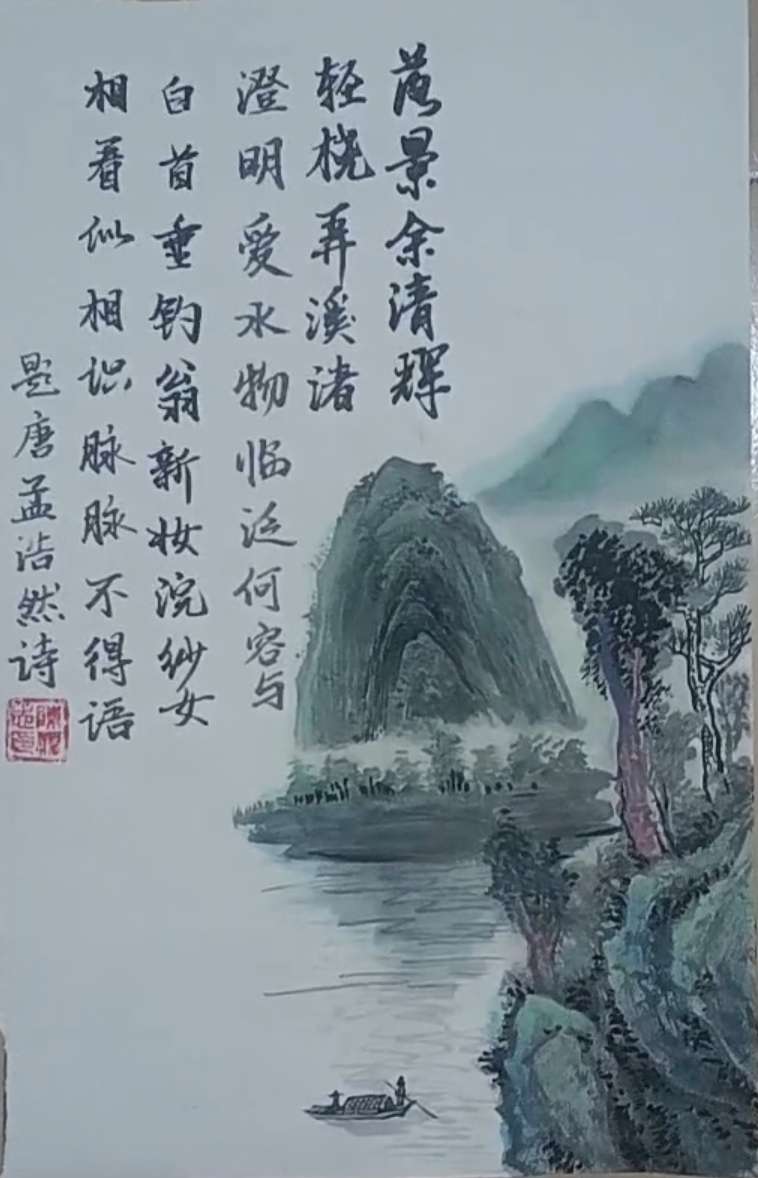 落景余清辉
轻桡弄溪渚
澄明爱水物临泛何容与
白首垂钓翁新妆浣纱女
相看似相识脉脉不得语
题唐孟浩然诗